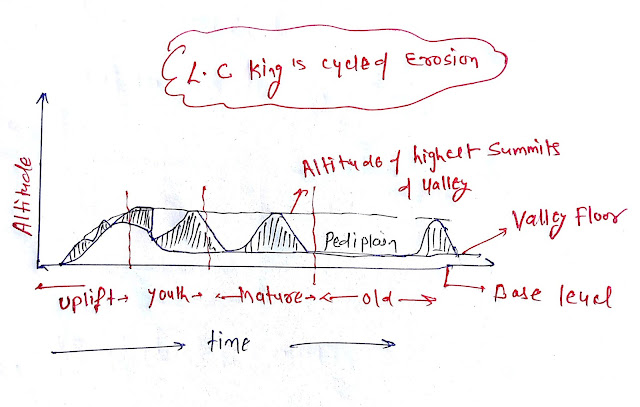 L.C King's cycle of Erosion
Altitude
Altitude of highest Summits
of Valley
Pediplain
Valley Floor
Uplift
youth
Mature
old
Base level
time